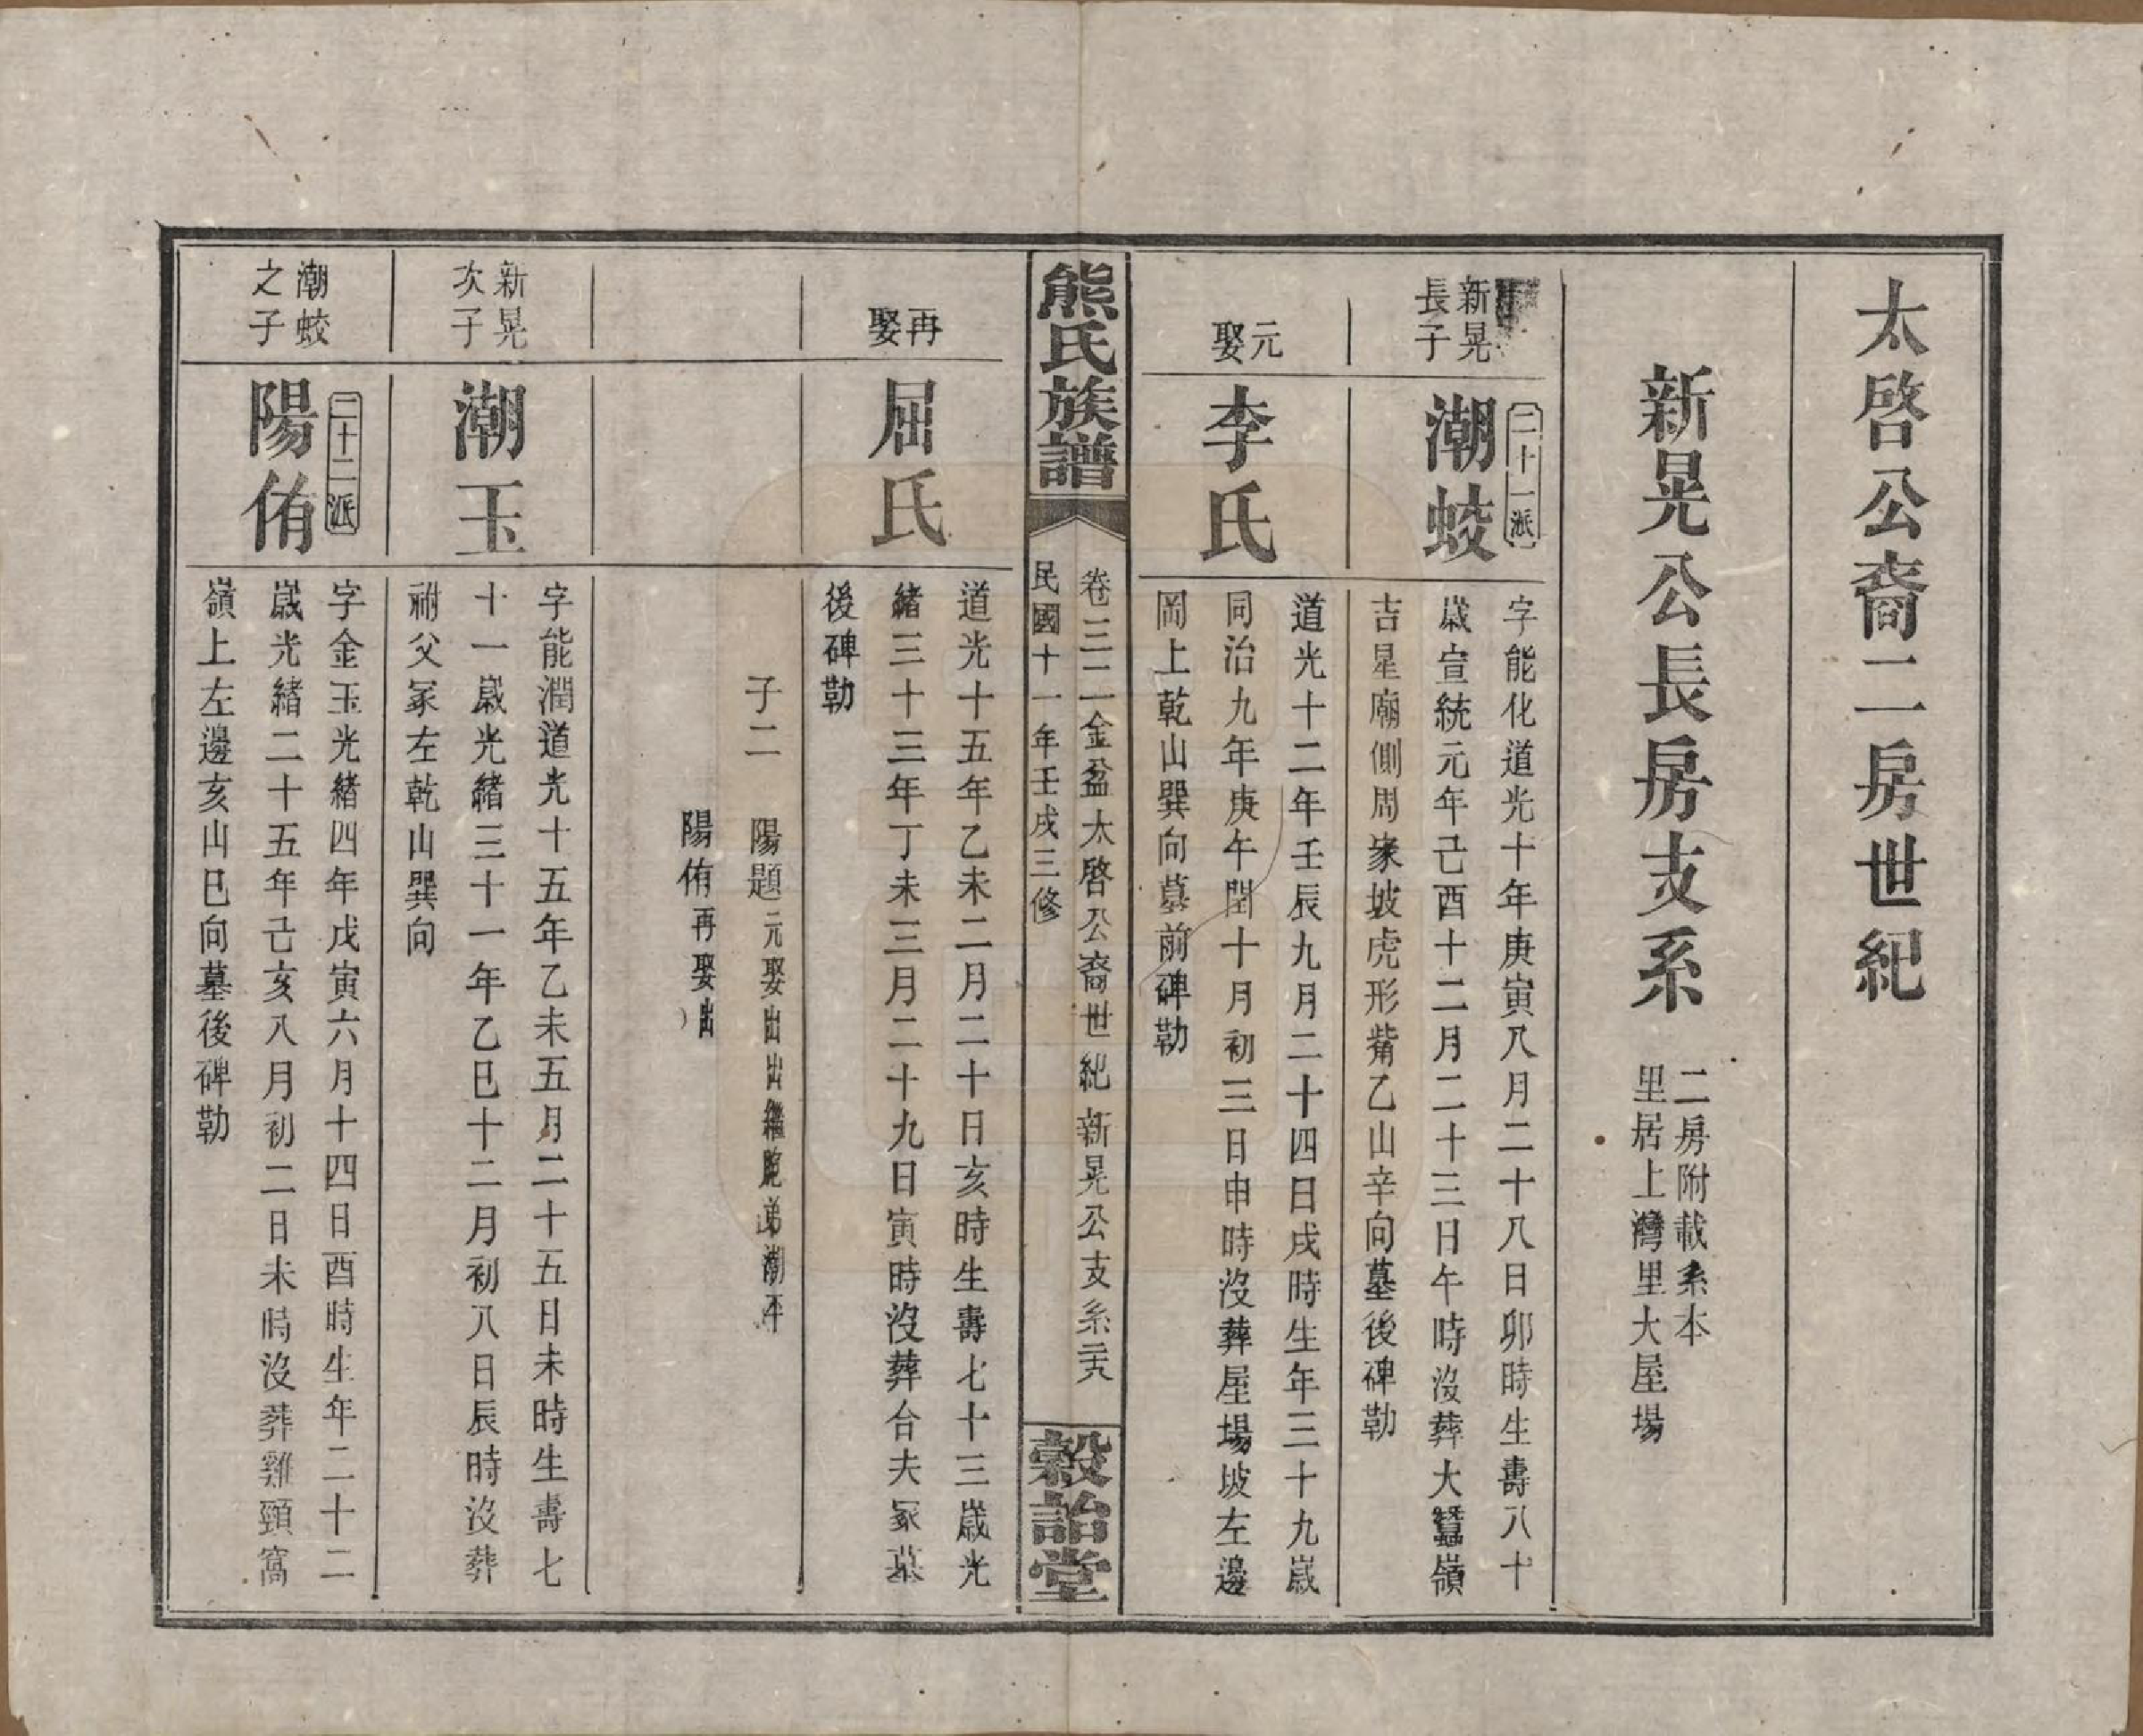 太啓公裔二房世紀
新晃公長房支系
二房附載系本
里居上灣里大屋場
新晃
長子
二十一派
潮蛟
字能化道光十年庚寅八月二十八日卯時生壽八十
歲宣統元年己酉十二月二十三日午時沒葬大蠶嶺
吉星廟側周家坡虎形觜乙山辛向墓後碑勒
元
娶
李氏
道光十二年壬辰九月二十四日戌時生年三十九歲
同治九年庚午閏十月初三日申時沒葬屋場坡左邊
岡上乾山巽向墓前碑勒
熊氏族譜
卷三二金盆太啓公裔世紀 新晃公支系
民國十一年壬戌三修
穀詒堂
再
娶
屈氏
道光十五年乙未二月二十日亥時生壽七十三歲光
緒三十三年丁未三月二十九日寅時沒葬台夫冢墓
後碑勒
子二 陽題元娶出出繼胞弟潮玉
陽侑再娶出
新晃
次子
潮玉
字能潤道光十五年乙未五月二十五日未時生壽七
十一歲光緒三十一年乙巳十二月初八日辰時沒葬
祔父冢左乾山巽向
潮蛟
之子
二十二派
陽侑
字金玉光緒四年戊寅六月十四日酉時生年二十二
歲光緒二十五年己亥八月初二日未時沒葬雞頸窩
嶺上左邊亥山巳向墓後碑勒